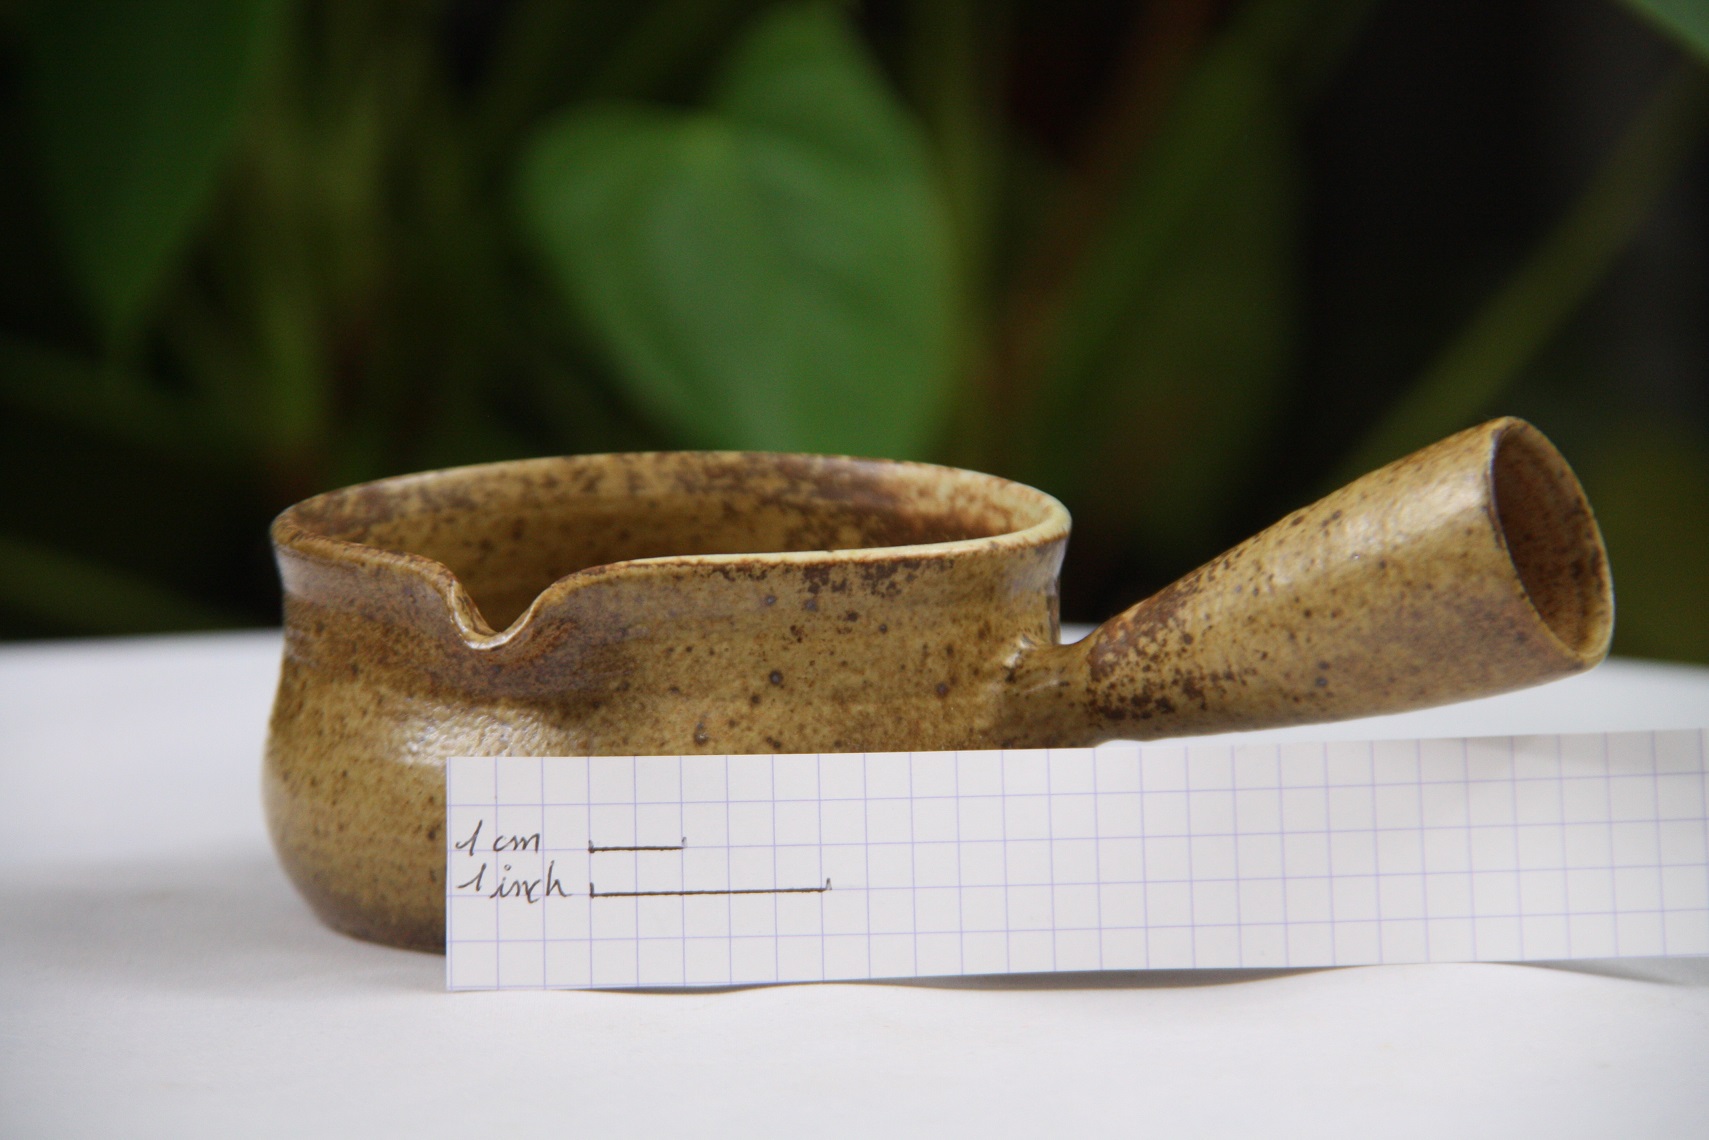 1 cm
1 inch